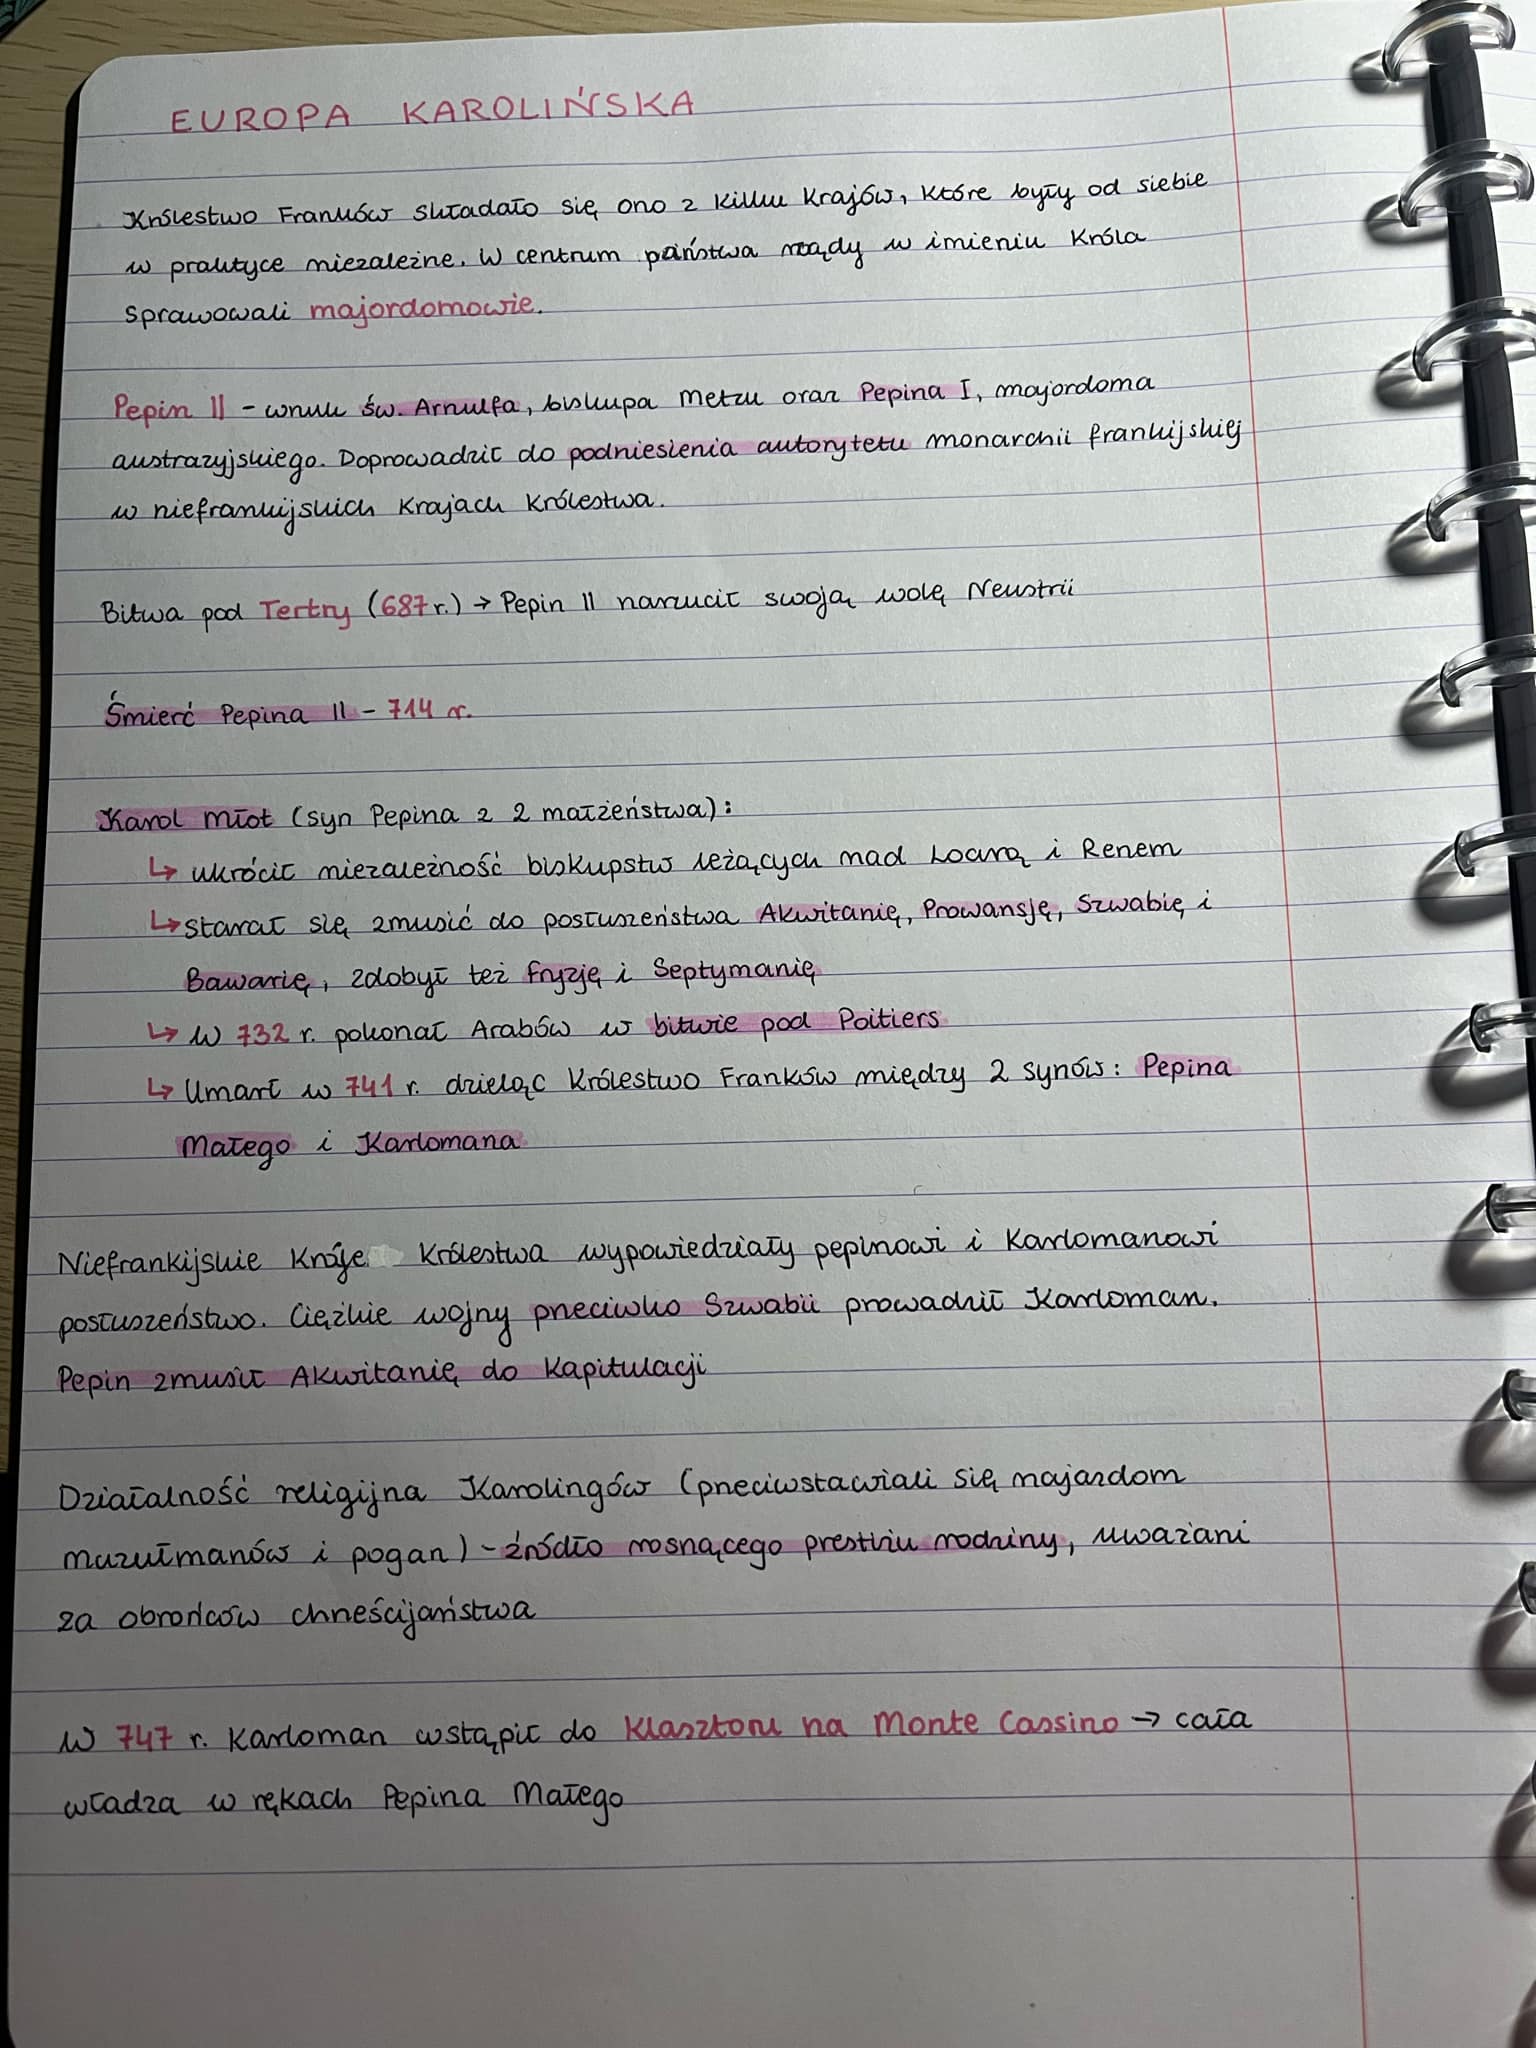 EUROPA KAROLIŃSKA
Królestwo Franków składało się ono z kilku krajów, które były od siebie
w praktyce niezależne. W centrum państwa rządy w imieniu króla
sprawowali majordomowie.
Pepin II - wnuk św. Arnulfa, biskupa Metzu oraz Pepina I, majordoma
austrazyjskiego. Doprowadził do podniesienia autorytetu monarchii frankijskiej
w niefrankijskich krajach królestwa.
Bitwa pod Tertry (687 r.) → Pepin II narzucił swoją wolę Neustrii
Śmierć Pepina II - 714 r.
Karol Młot (syn Pepina z 2 małżeństwa):
↳ ukrócił niezależność biskupstw leżących nad Loarą i Renem
↳ starał się zmusić do posłuszeństwa Akwitanię, Prowansję, Szwabię i
Bawarię, zdobył też Fryzję i Septymanię
↳ W 732 r. pokonał Arabów w bitwie pod Poitiers
↳ Umarł w 741 r. dzieląc Królestwo Franków między 2 synów: Pepina
Małego i Karlomana
Niefrankijskie kraje królestwa wypowiedziały pepinowi i Karlomanowi
posłuszeństwo. Ciężkie wojny przeciwko Szwabii prowadził Karloman.
Pepin zmusił Akwitanię do kapitulacji
Działalność religijna Karolingów (przeciwstawiali się najazdom
muzułmanów i pogan) - źródło rosnącego prestiżu rodziny, uważani
za obrońców chrześcijaństwa
W 747 r. Karloman wstąpił do klasztoru na Monte Cassino → cała
władza w rękach Pepina Małego